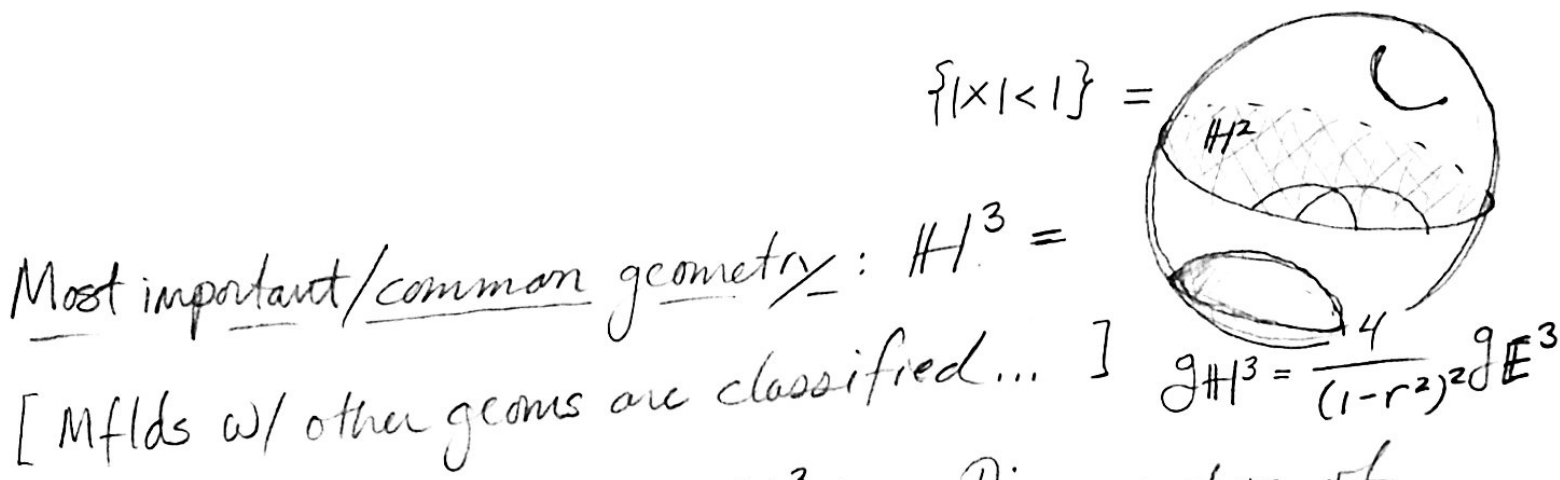 {|x|<1} =
ℍ²
Most important/common geometry: ℍ³ =
[Mflds w/ other geoms are classified... ]
g_ℍ³ = 4/(1-r²)² g_𝔼³